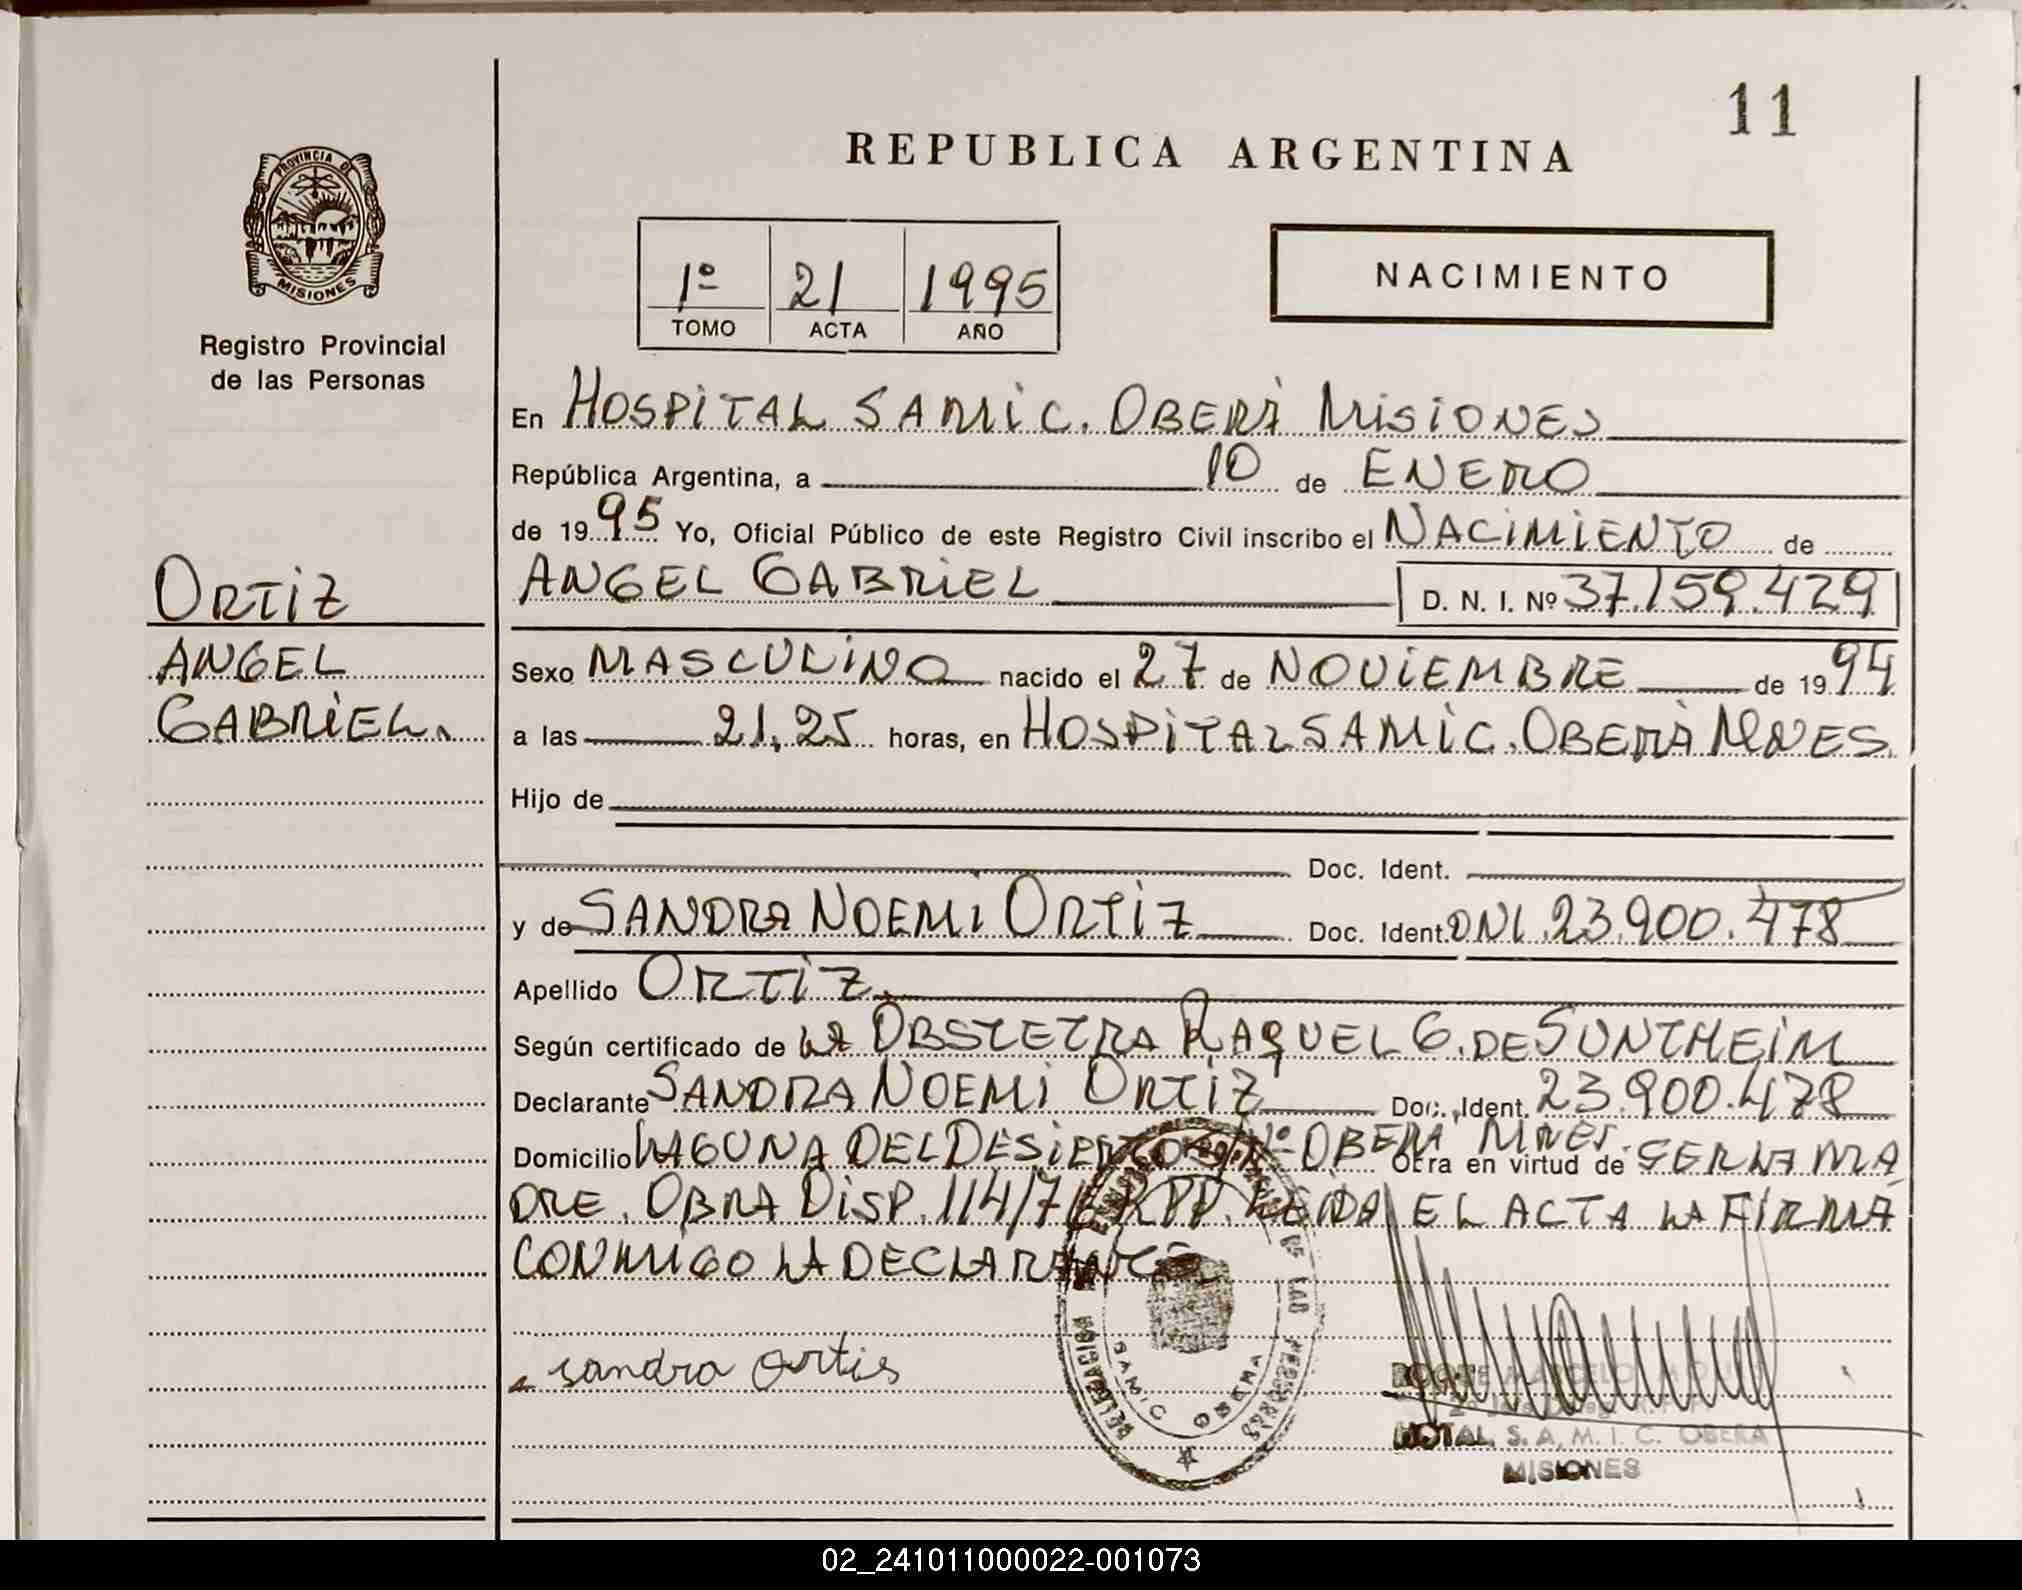 11
REPUBLICA ARGENTINA
PROVINCIA DE
MISIONES
Registro Provincial
de las Personas
1º 21 1995
TOMO ACTA AÑO
NACIMIENTO
En HOSPITAL SAMIC. OBERÁ MISIONES
República Argentina, a 10 de ENERO
de 1995 Yo, Oficial Público de este Registro Civil inscribo el NACIMIENTO de
ANGEL GABRIEL D. N. I. Nº 37.159.429
ORTIZ
ANGEL
GABRIEL.
Sexo MASCULINO nacido el 27 de NOVIEMBRE de 1994
a las 21,25 horas, en HOSPITAL SAMIC. OBERÁ MNES
Hijo de
Doc. Ident.
y de SANDRA NOEMI ORTIZ Doc. Ident. DNI. 23.900.478
Apellido ORTIZ
Según certificado de LA OBSTETRA RAQUEL G. DE SUNTHEIM
Declarante SANDRA NOEMI ORTIZ Doc. Ident. 23.900.478
Domicilio LAGUNA DEL DESIERTO S/Nº OBERÁ MNES. Obra en virtud de SER LA MA
DRE. OBRA DISP. 114/76 RPP. LEIDA EL ACTA LA FIRMA
CONMIGO LA DECLARANTE
sandra ortis
DELEGACION
DE LAS PERSONAS
SAMIC OBERA
ROQUE MARCELO
HOTAL. S. A. M. I. C. OBERA
MISIONES
02_241011000022-001073